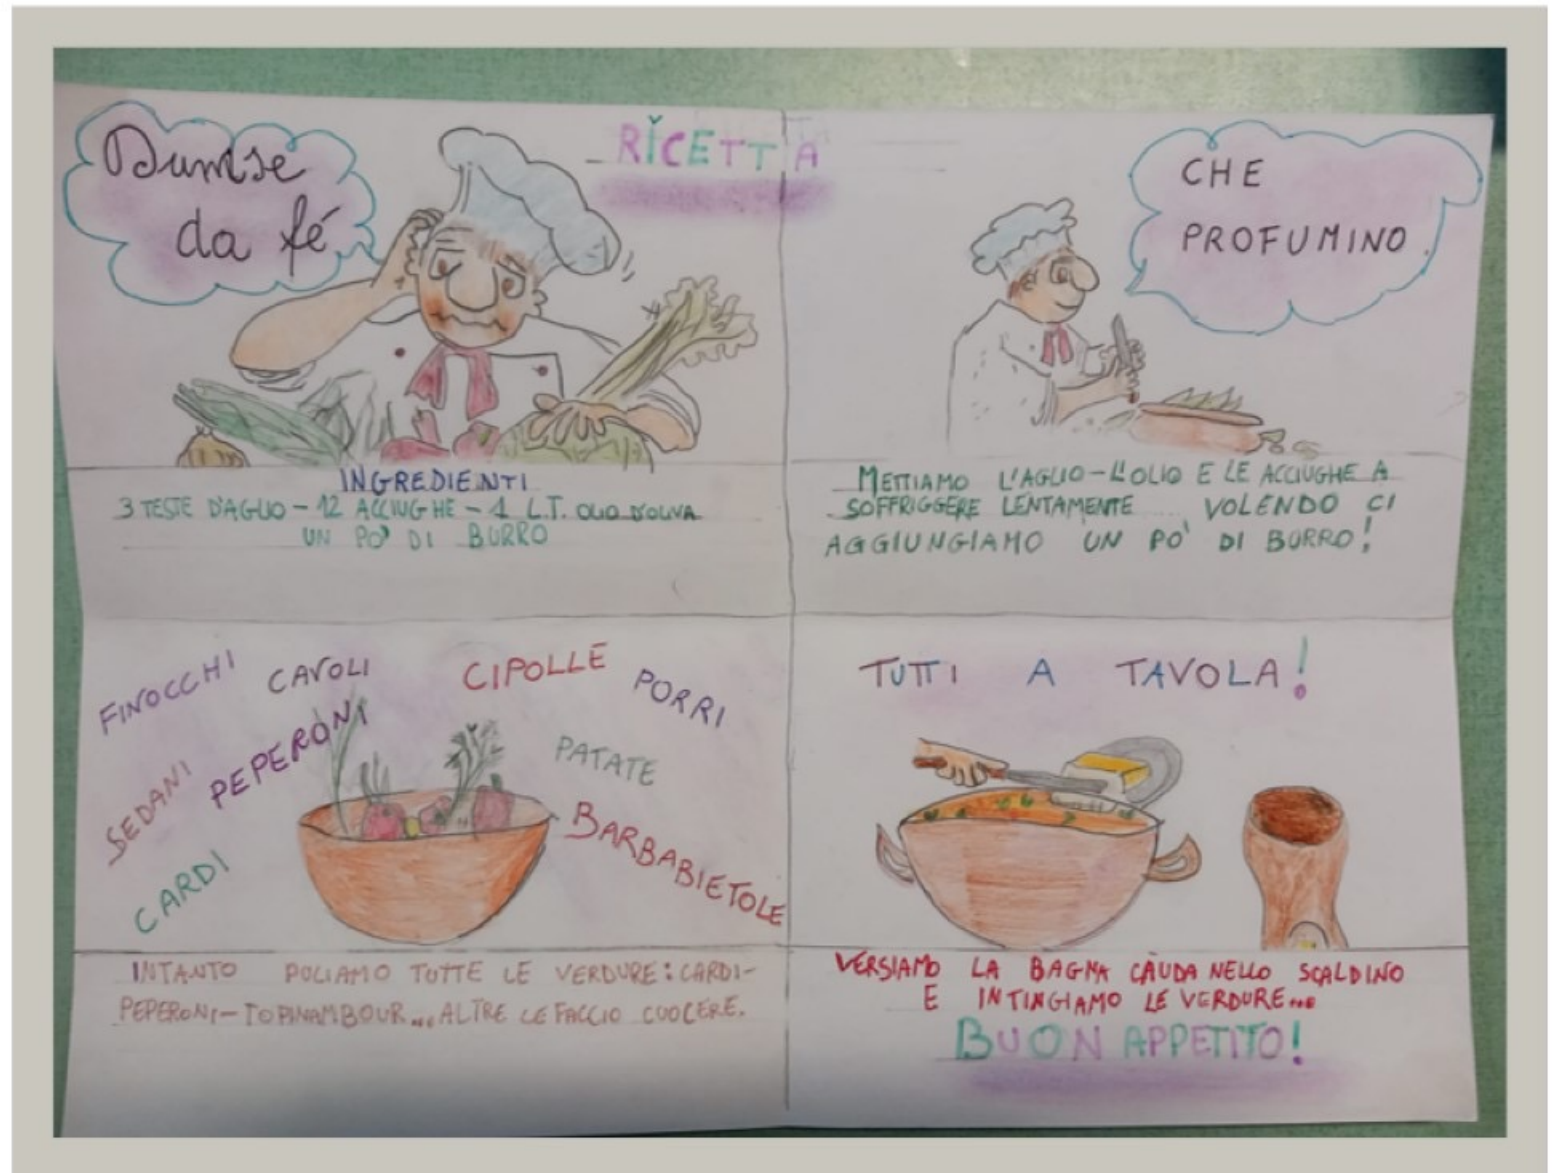 RICETTA
Dumse
da fé
INGREDIENTI
3 TESTE D'AGLIO - 12 ACCIUGHE - 1 LT. OLIO D'OLIVA
UN PO' DI BURRO
CHE
PROFUMINO.
METTIAMO L'AGLIO - L'OLIO E LE ACCIUGHE A
SOFFRIGGERE LENTAMENTE VOLENDO CI
AGGIUNGIAMO UN PO' DI BURRO!
FINOCCHI
CAVOLI
CIPOLLE
PORRI
SEDANI
PEPERONI
PATATE
CARDI
BARBABIETOLE
INTANTO PULIAMO TUTTE LE VERDURE: CARDI-
PEPERONI - TOPINAMBOUR... ALTRE LE FACCIO CUOCERE.
TUTTI A TAVOLA!
VERSIAMO LA BAGNA CÀUDA NELLO SCALDINO
E INTINGIAMO LE VERDURE...
BUON APPETITO!